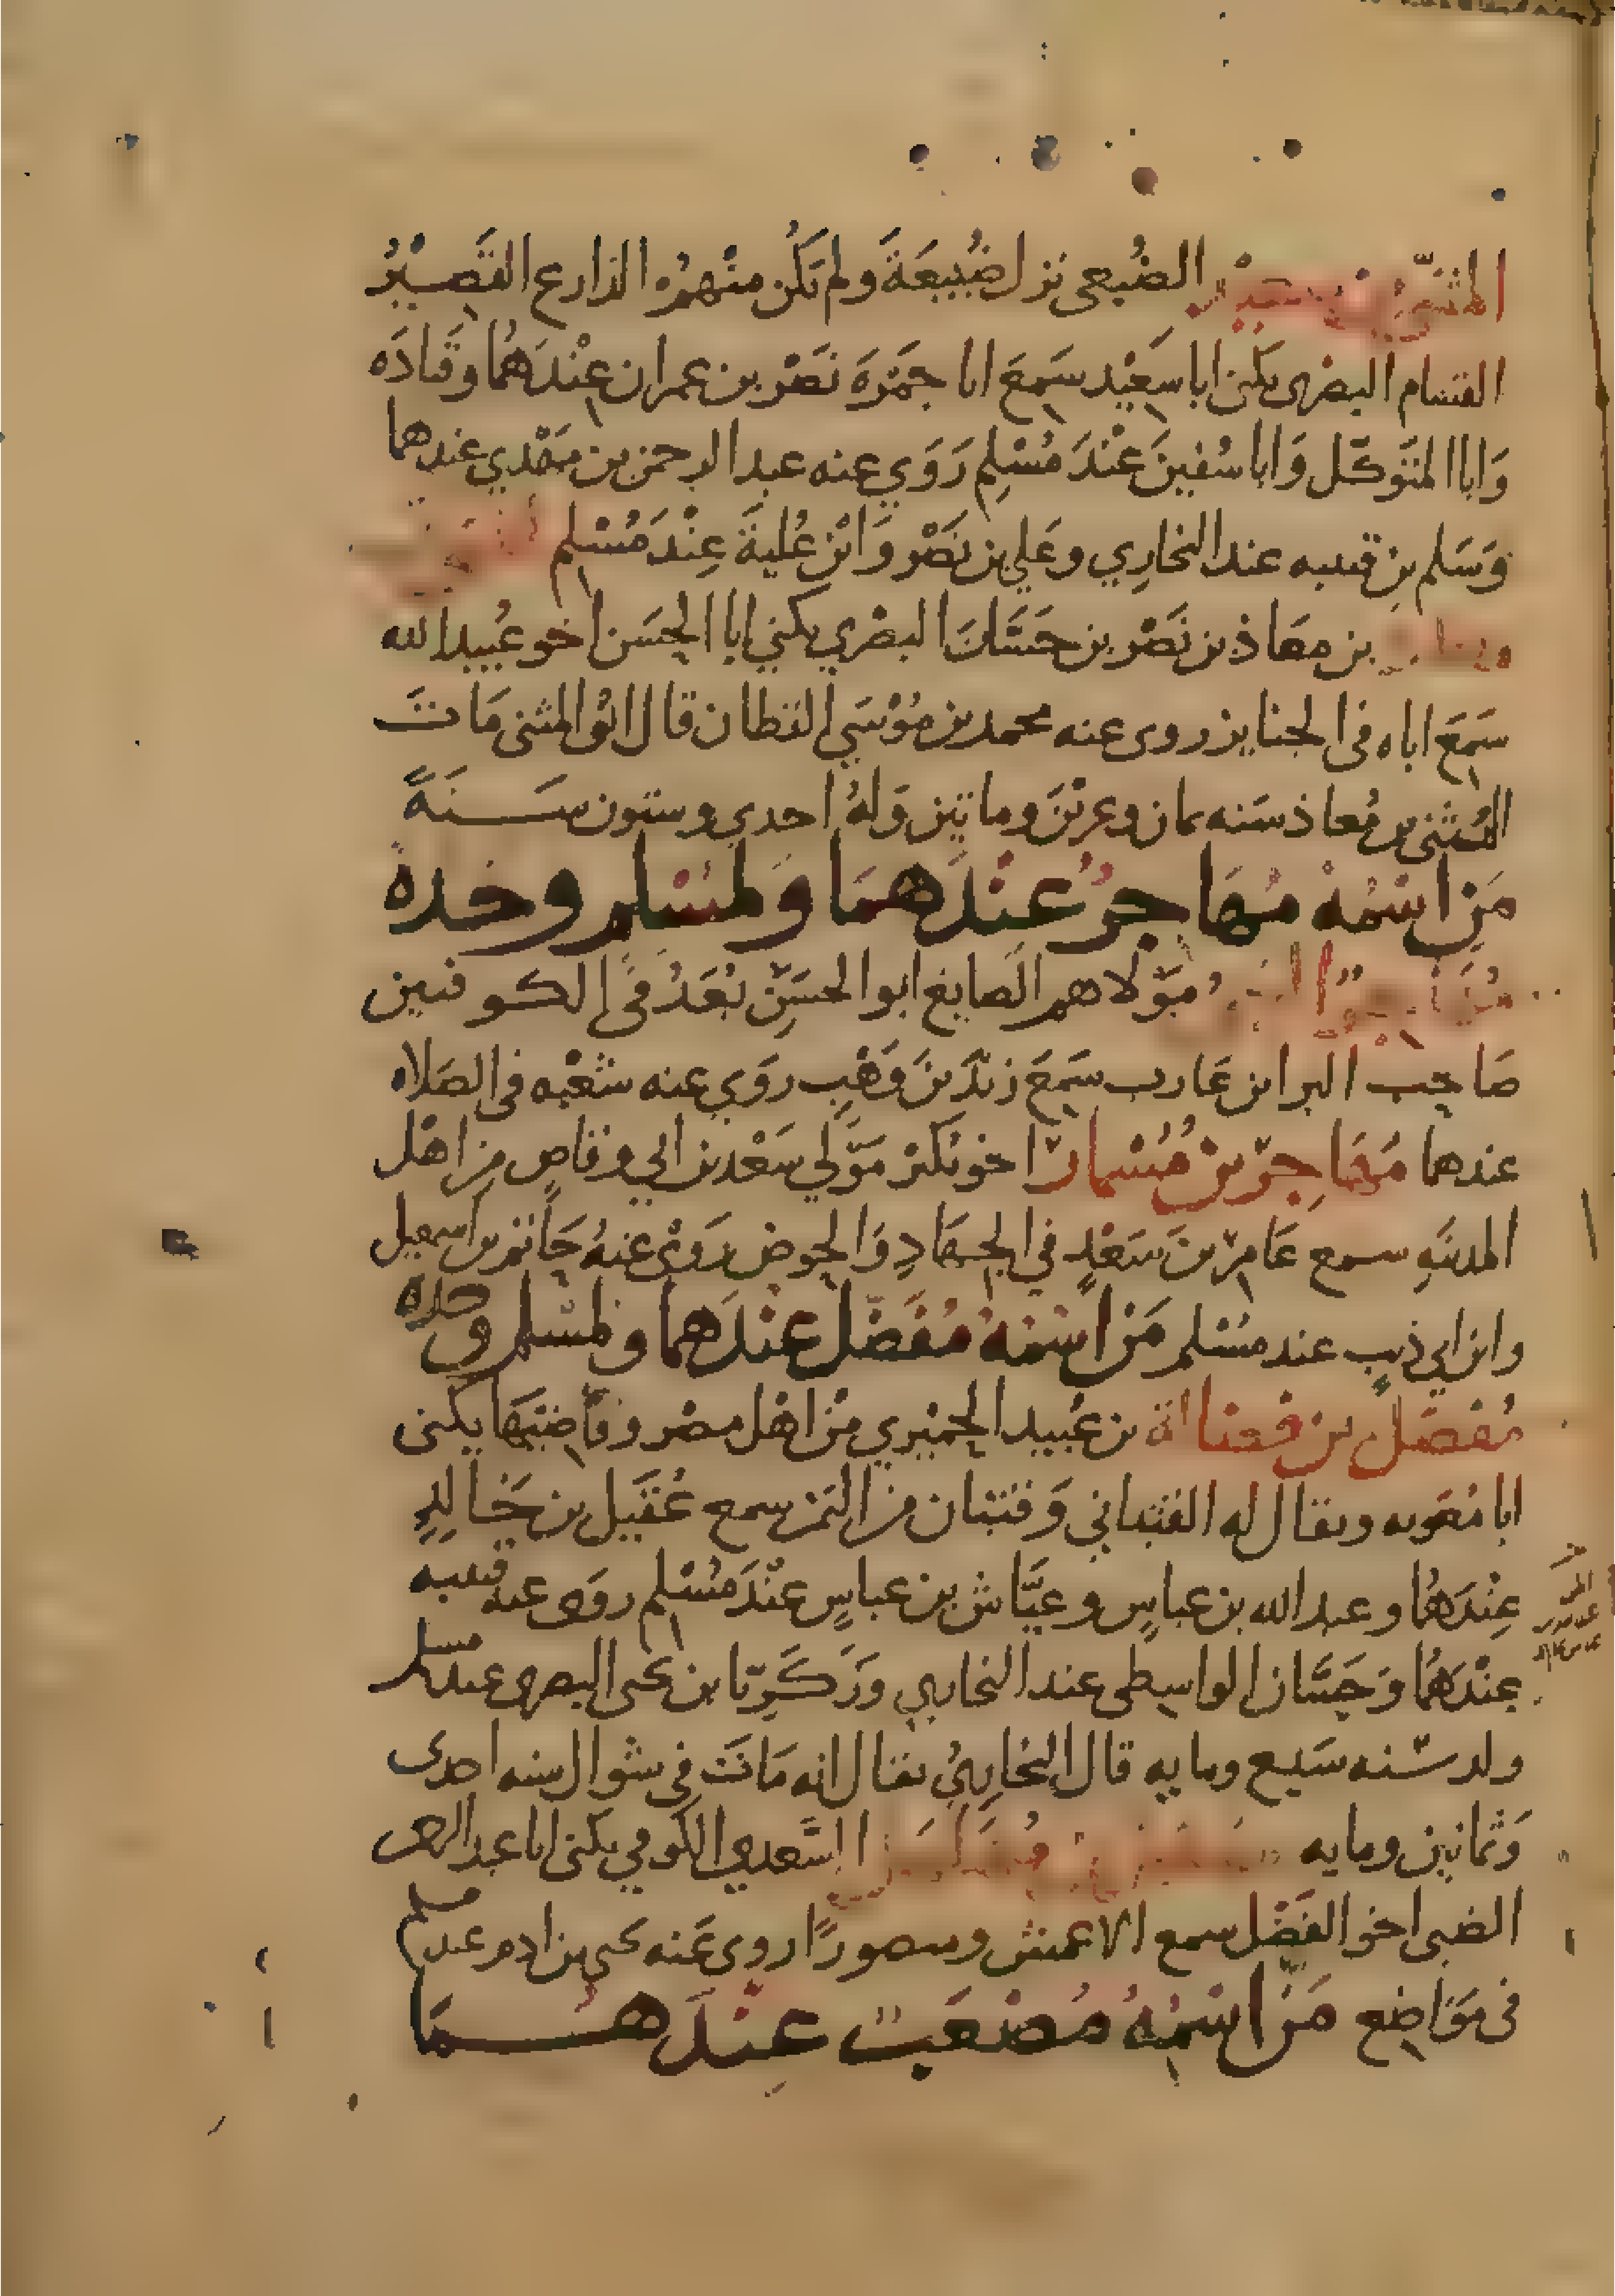 المثنى بن سعيد الضبعي نزل ضبيعة ولم يكن منهم الذارع القصير
القسام البصرى يكنى ابا سعيد سمع ابا جمرة نصر بن عمران عندهما وقتاده
وابا المتوكل وابا سفين عند مسلم روي عنه عبد الرحمن بن مهدي عندهما
وسلم بن قتيبه عند البخاري وعلي بن نصر وابن علية عند مسلم
بن معاذ بن نصر بن حسان البصري يكني ابا الحسن اخو عبيد الله
سمع اباه فى الجنايز روى عنه محمد بن موسي القطان قال ابو المثنى مات
المثنى بن معاذ سنه ثمان وعشرين وماتين وله احدى وستون سنة
من اسمه مهاجر عندهما ولمسلم وحده
مهاجر ابو الحسن مولاهم الصايغ ابو الحسن يعد فى الكوفيين
صاحب البرا بن عازب سمع زيد بن وهب روي عنه شعبه فى الصلاه
عندهما مهاجر بن مسمار اخو بكير مولي سعد بن ابي وقاص من اهل
المدينه سمع عامر بن سعد في الجهاد والحوض روى عنه حاتم بن اسمعيل
وابن ابي ذيب عند مسلم من اسمه مفضل عندهما ولمسلم وحده
مفضل بن فضالة بن عبيد الحميري من اهل مصر وقاضيها يكنى
ابا معويه ويقال له القتباني وقتبان من اليمن سمع عقيل بن خالد
عندهما وعبد الله بن عباس وعياش بن عباس عند مسلم روى عنه قتيبه
عندهما وحسان الواسطى عند البخاري وزكريا بن يحى البصرى عند مسلم
ولد سنه سبع ومايه قال البخاري يقال انه مات في شوال سنه احدى
وثمانين ومايه مفضل بن مهلهل السعدي الكوفي يكنى ابا عبد الرحمن
الضبى اخو الفضل سمع الاعمش ومنصورا روى عنه يحى بن ادم عند مسلم
فى مواضع من اسمه مصعب عندهما